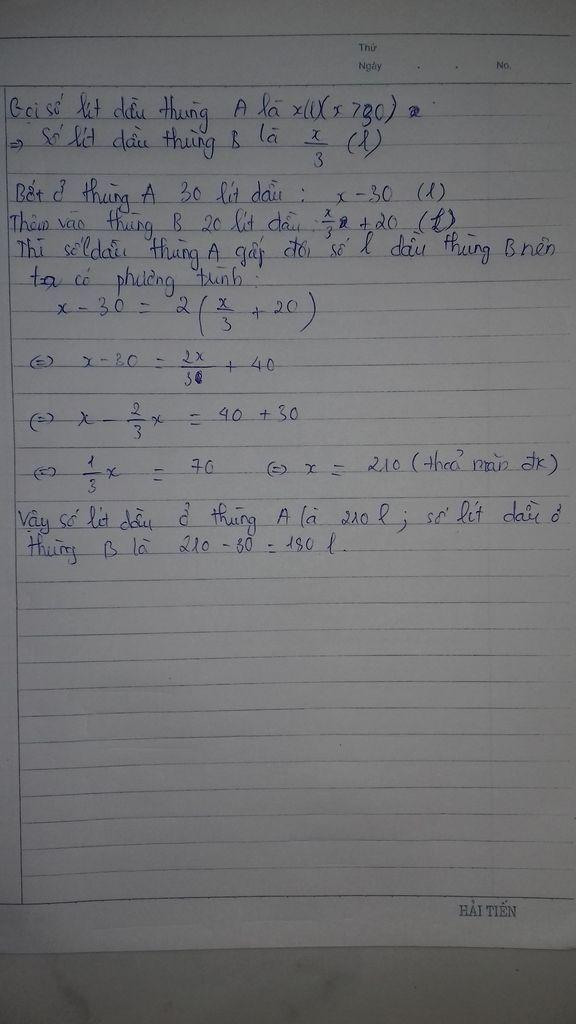 Thứ
Ngày . . No.
Gọi số lít dầu thùng A là x(l)(x > 30)
⇒ Số lít dầu thùng B là x/3 (l)
Bớt ở thùng A 30 lít dầu : x - 30 (l)
Thêm vào thùng B 20 lít dầu : x/3 + 20 (l)
Thì số l dầu thùng A gấp đôi số l dầu thùng B nên
ta có phương trình :
x - 30 = 2(x/3 + 20)
⇔ x - 30 = 2x/3 + 40
⇔ x - 2/3 x = 40 + 30
⇔ 1/3 x = 70 ⇔ x = 210 (thoả mãn đk)
Vậy số lít dầu ở thùng A là 210 l ; số lít dầu ở
thùng B là 210 - 30 = 180 l.
HẢI TIẾN